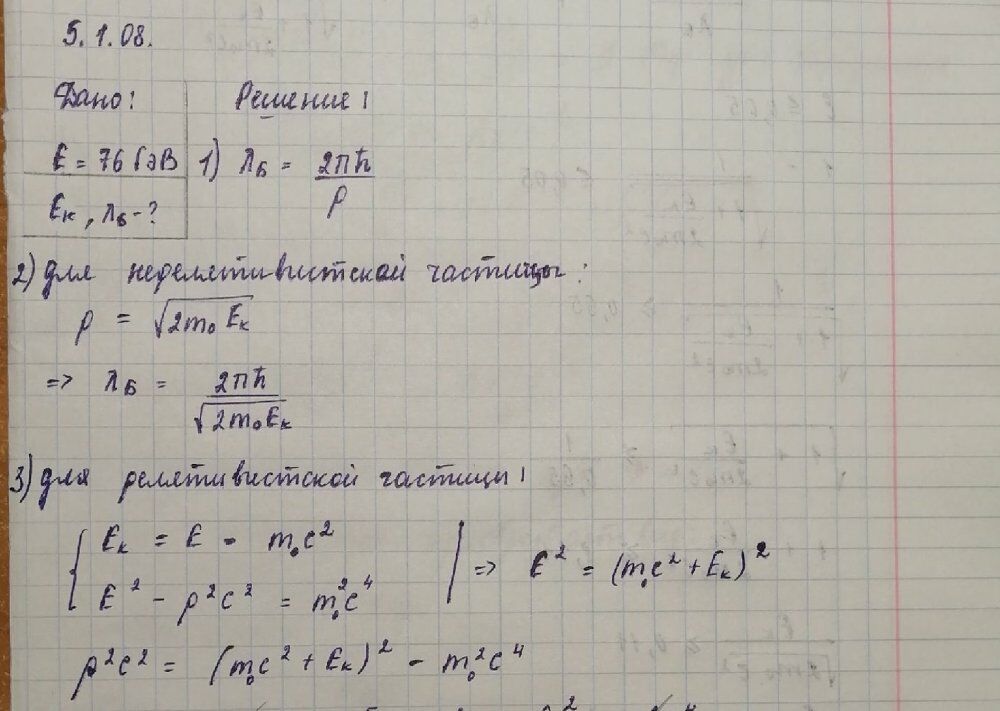 5.1.08.
Дано: Решение:
E = 76 ГэВ 1) λБ = 2πħ / p
Eк, λБ - ?
2) для нерелятивистской частицы:
p = √(2m₀Eк)
=> λБ = 2πħ / √(2m₀Eк)
3) для релятивистской частицы:
{ Eк = E - m₀c²
E² - p²c² = m₀²c⁴ | => E² = (m₀c² + Eк)²
p²c² = (m₀c² + Eк)² - m₀²c⁴